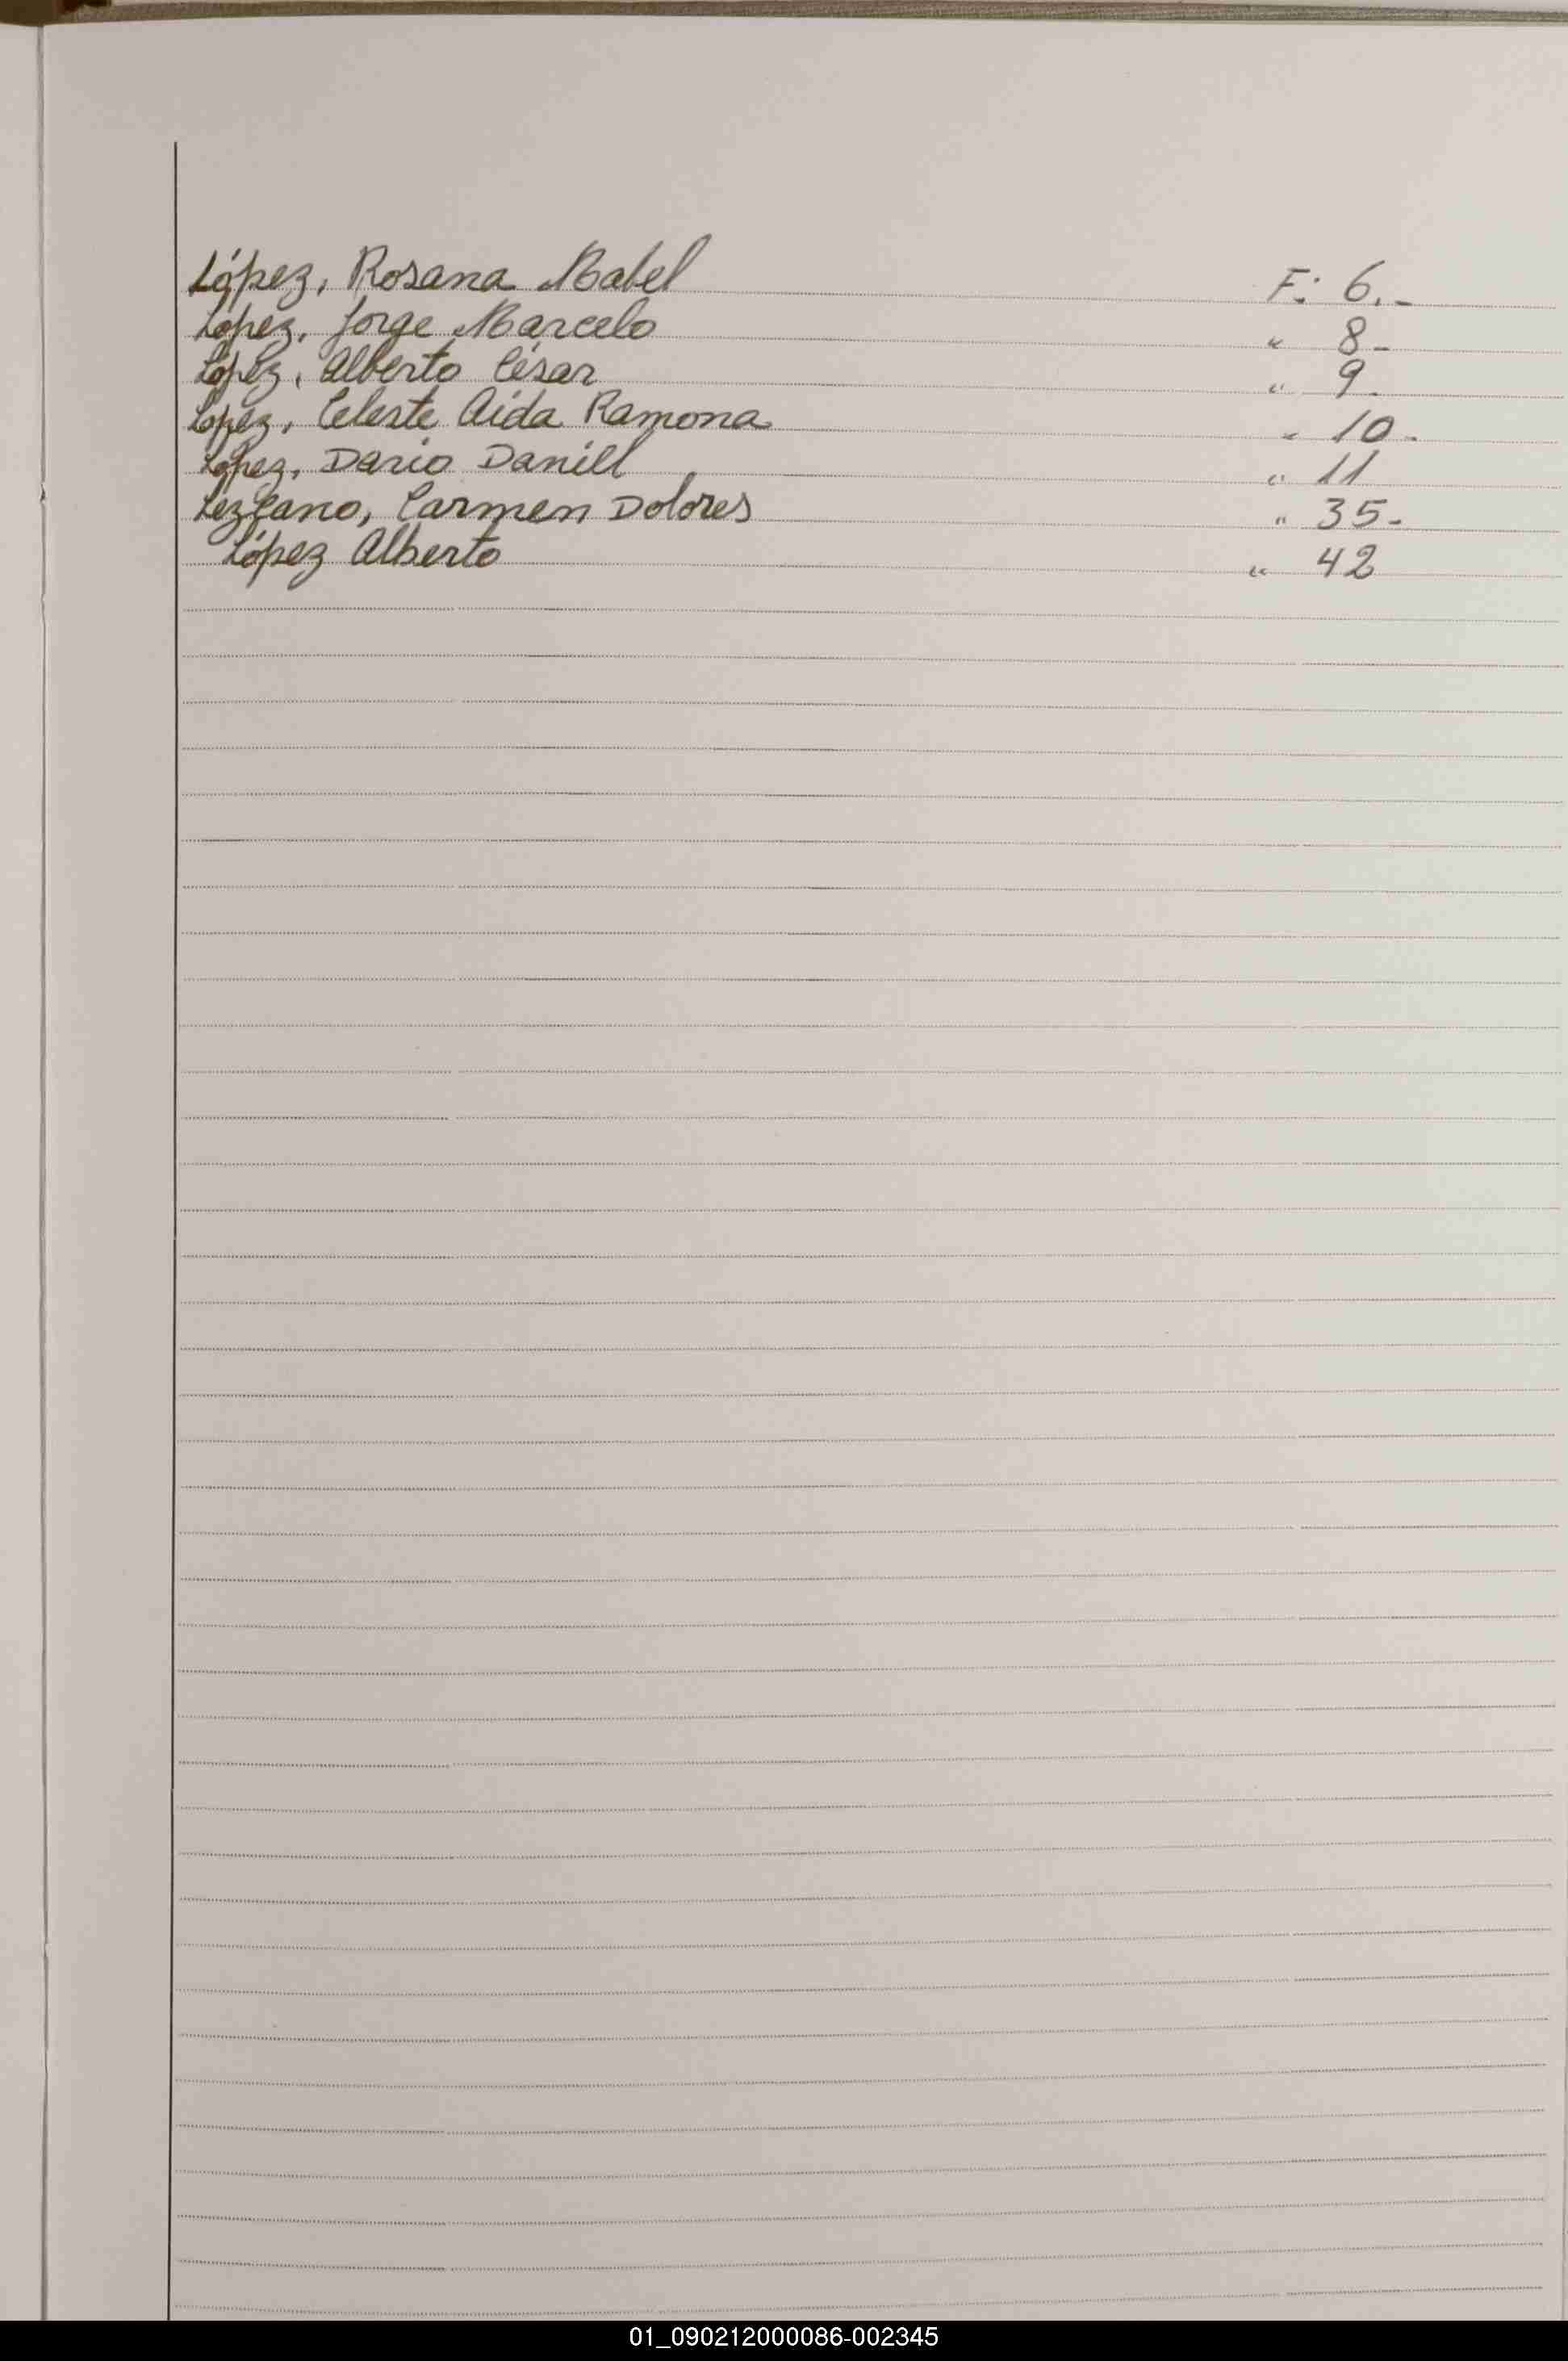 López, Rosana Mabel F: 6.-
López, Jorge Marcelo " 8-
López, Alberto César " 9.
López, Celeste Aida Ramona " 10.
López, Dario Daniel " 11
Lezcano, Carmen Dolores " 35-
López Alberto " 42
01_090212000086-002345